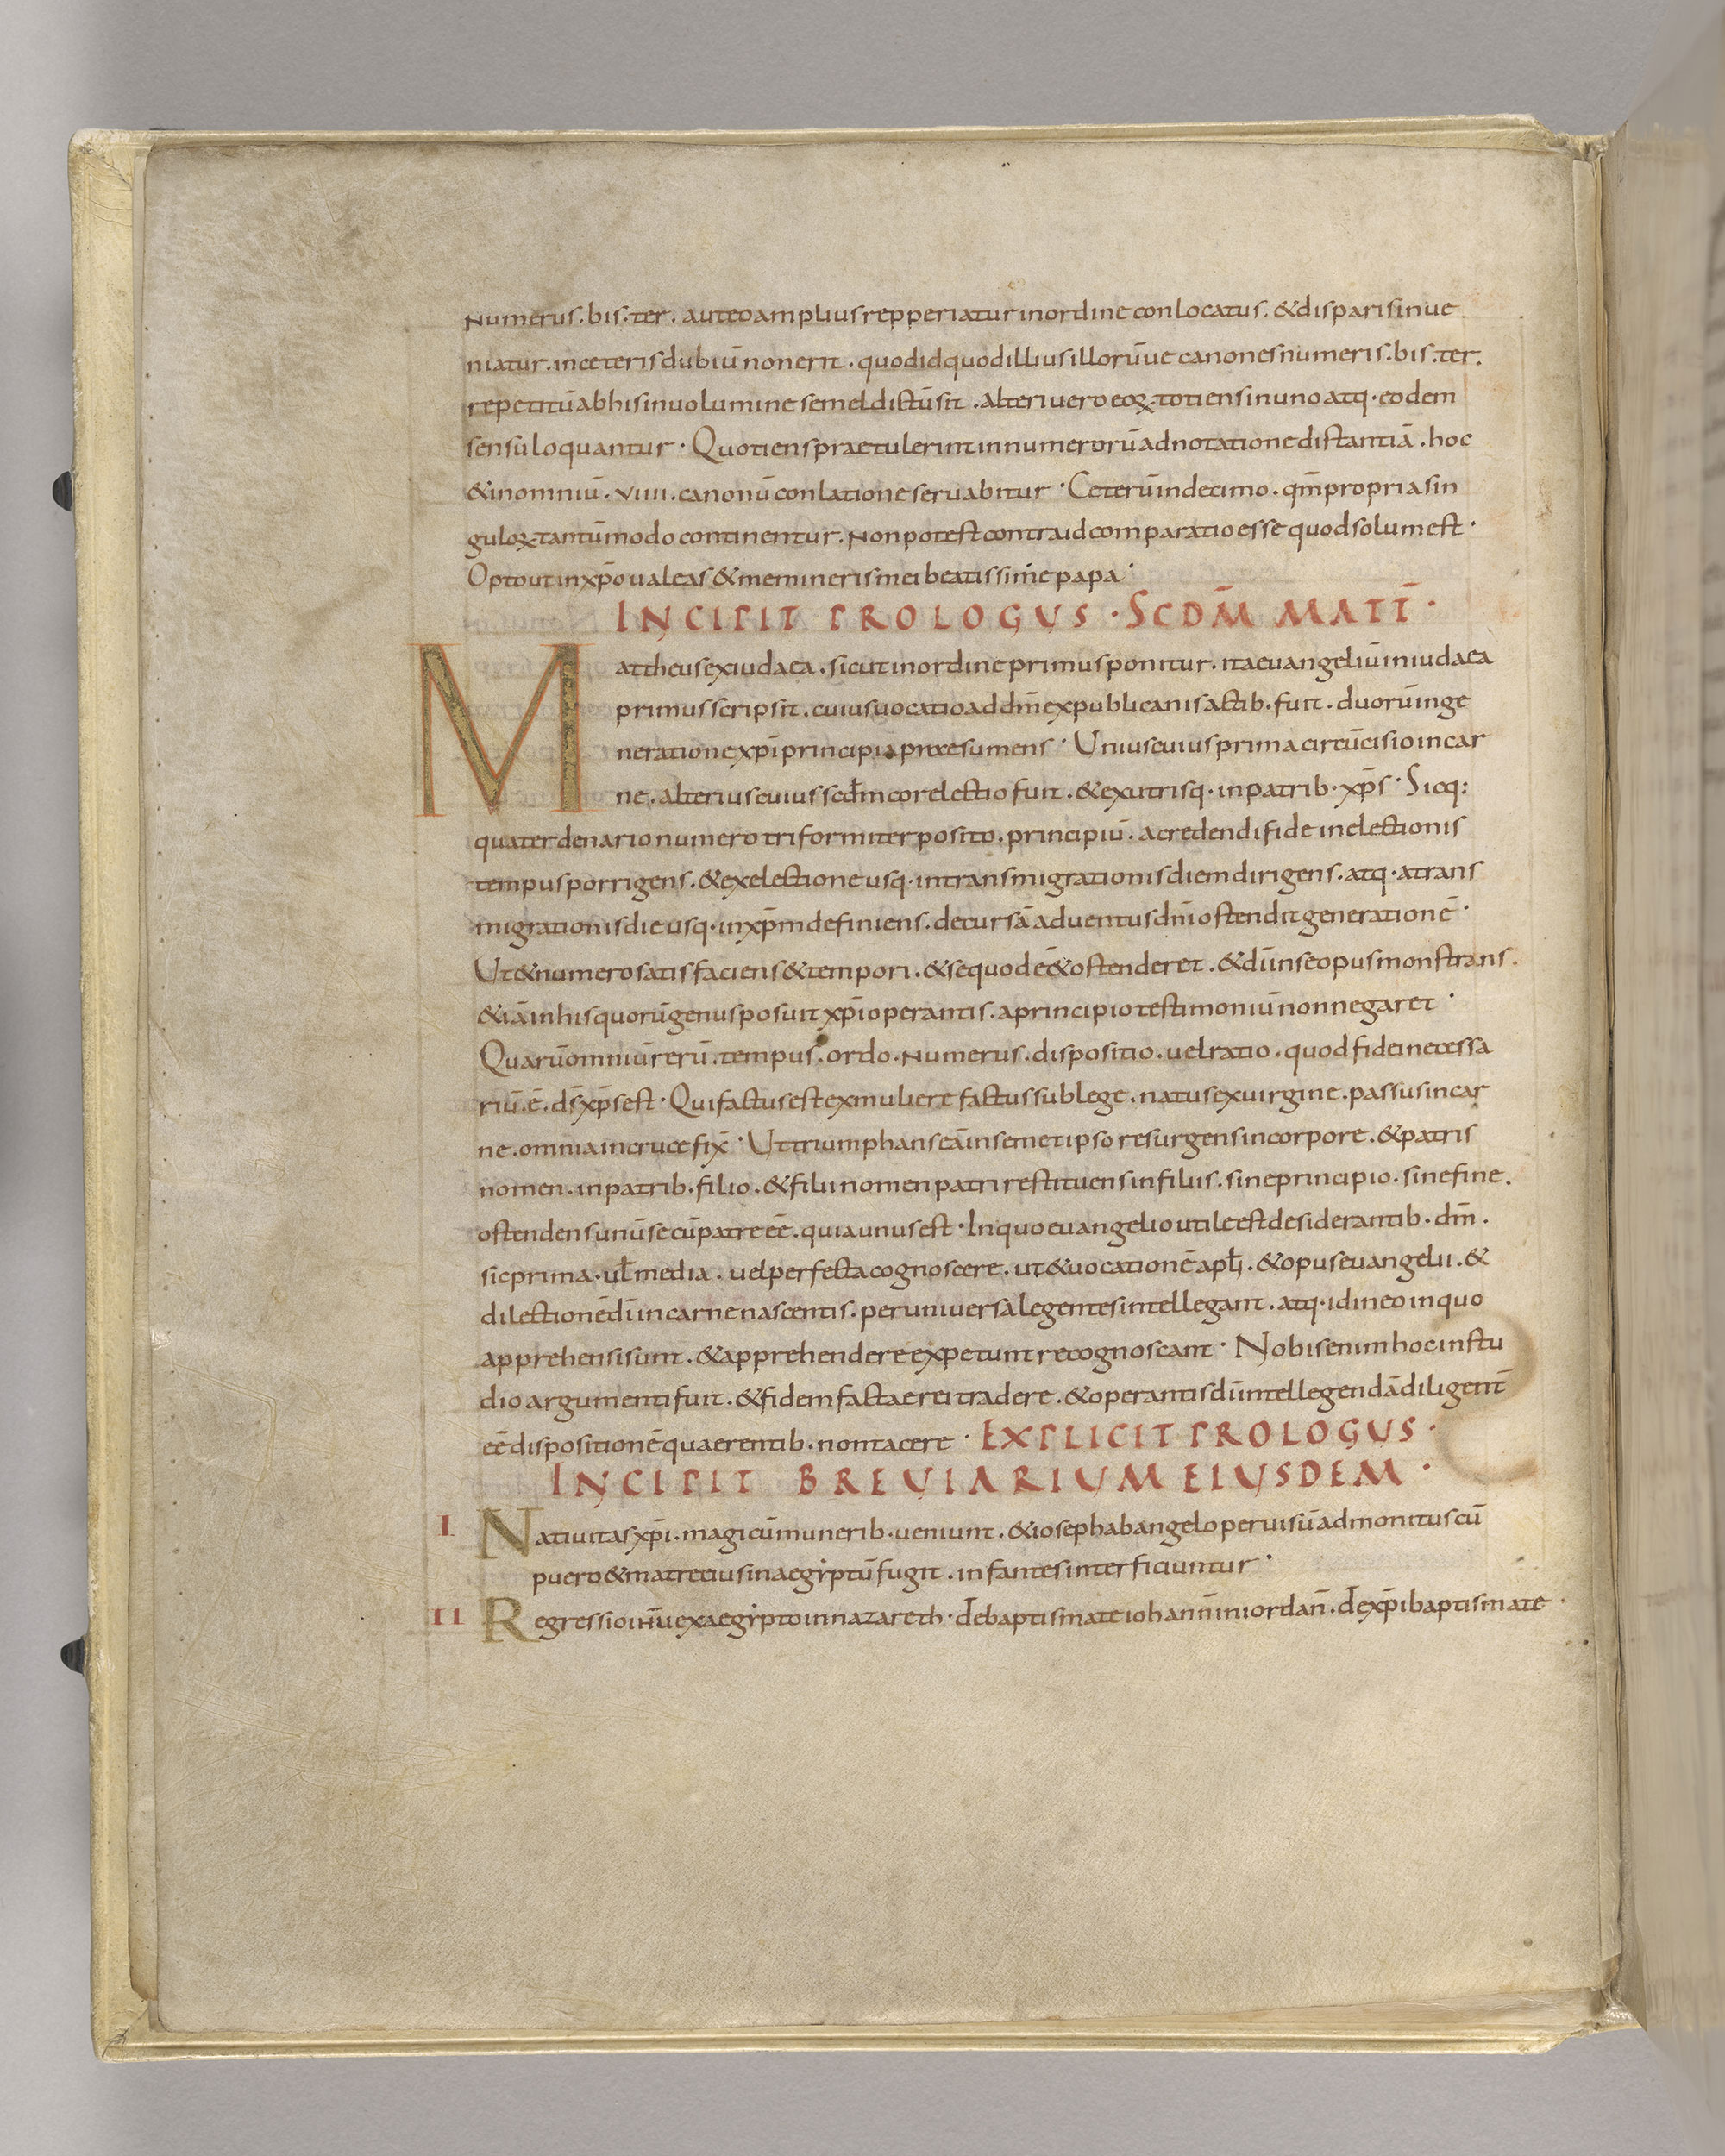 numerus. bis. ter. aut eo amplius repperiatur in ordine conlocatus. & dispari sinue
niatur. in ceteris dubiū non erit. quod id quod illius illorūue canones numeris. bis. ter.
repetitū ab his in uolumine semel dictū sit. alteri uero eoꝝ totiens in uno atq· eodem
sensu loquantur· Quotiens praetulerint in numerorū adnotatione distantiā. hoc
& in omniū. viiii. canonū conlatione seruabitur· Ceterū in decimo. qm̄ propria sin
guloꝝ tantūmodo continentur. Non potest contra id comparatio esse quod solum est·
Opto ut in xp̄o ualeas & memineris mei beatissime papa·
INCIPIT PROLOGUS · SCDM̄ MATT̄·
Mattheus ex iudaea. sicut in ordine primus ponitur. ita euangeliū in iudaea
primus scripsit. cuius uocatio ad dm̄ ex publicanis actib· fuit. duorū in ge
neratione xp̄i principia praesumens· Unius cuius prima circūcisio in car
ne. alterius cuius scd̄m cor electio fuit. & ex utrisq· in patrib· xp̄s· Sicq:
quaterdenario numero triformiter posito. principiū. a credendi fide in electionis
tempus porrigens. & ex electione usq· in transmigrationis diem dirigens. atq· a trans
migrationis die usq· in xp̄m definiens. decursā aduentus dn̄i ostendit generationē·
Ut & numero satisfaciens & tempori. & se quod ēē & ostenderet. & dī in se opus monstrans.
& iā in his quorū genus posuit xp̄i operantis. a principio testimoniū non negaret·
Quarū omniū rerū. tempus. ordo. Numerus. dispositio. uel ratio. quod fidei necessa
riū. ē. dś xp̄s est· Qui factus est ex muliere factus sub lege. natus ex uirgine. passus in car
ne. omnia in cruce fix̄· Ut triumphans eā in semetipso resurgens in corpore. & patris
nomen. in patrib· filio. & filii nomen patri restituens in filiis. sine principio. sine fine.
ostendens unū se cū patre ēē. quia unus est· In quo euangelio utile est desiderantib· dm̄.
sic prima· ul̄ media. uel perfecta cognoscere. ut & uocationē apl̄i. & opus euangelii. &
dilectionē dī in carne nascentis. per uniuersā legentes intellegant. atq· id in eo in quo
apprehensi sunt. & apprehendere expetunt recognoscant· Nobis enim hoc in stu
dio argumenti fuit. & fidem factae rei tradere. & operantis dī intellegendā diligent̄
ēē dispositionē quaerentib· non tacere· EXPLICIT PROLOGUS·
INCIPIT BREVIARIUM EIUSDEM·
I Natiuitas xp̄i· magi cū munerib· ueniunt. & ioseph ab angelo per uisū admonitus cū
puero & matre eius in aegiptū fugit. infantes interficiuntur·
II Regressio ih̄u ex aegipto in nazareth· de baptismate iohannīn iordan̄. de xp̄i baptismate·